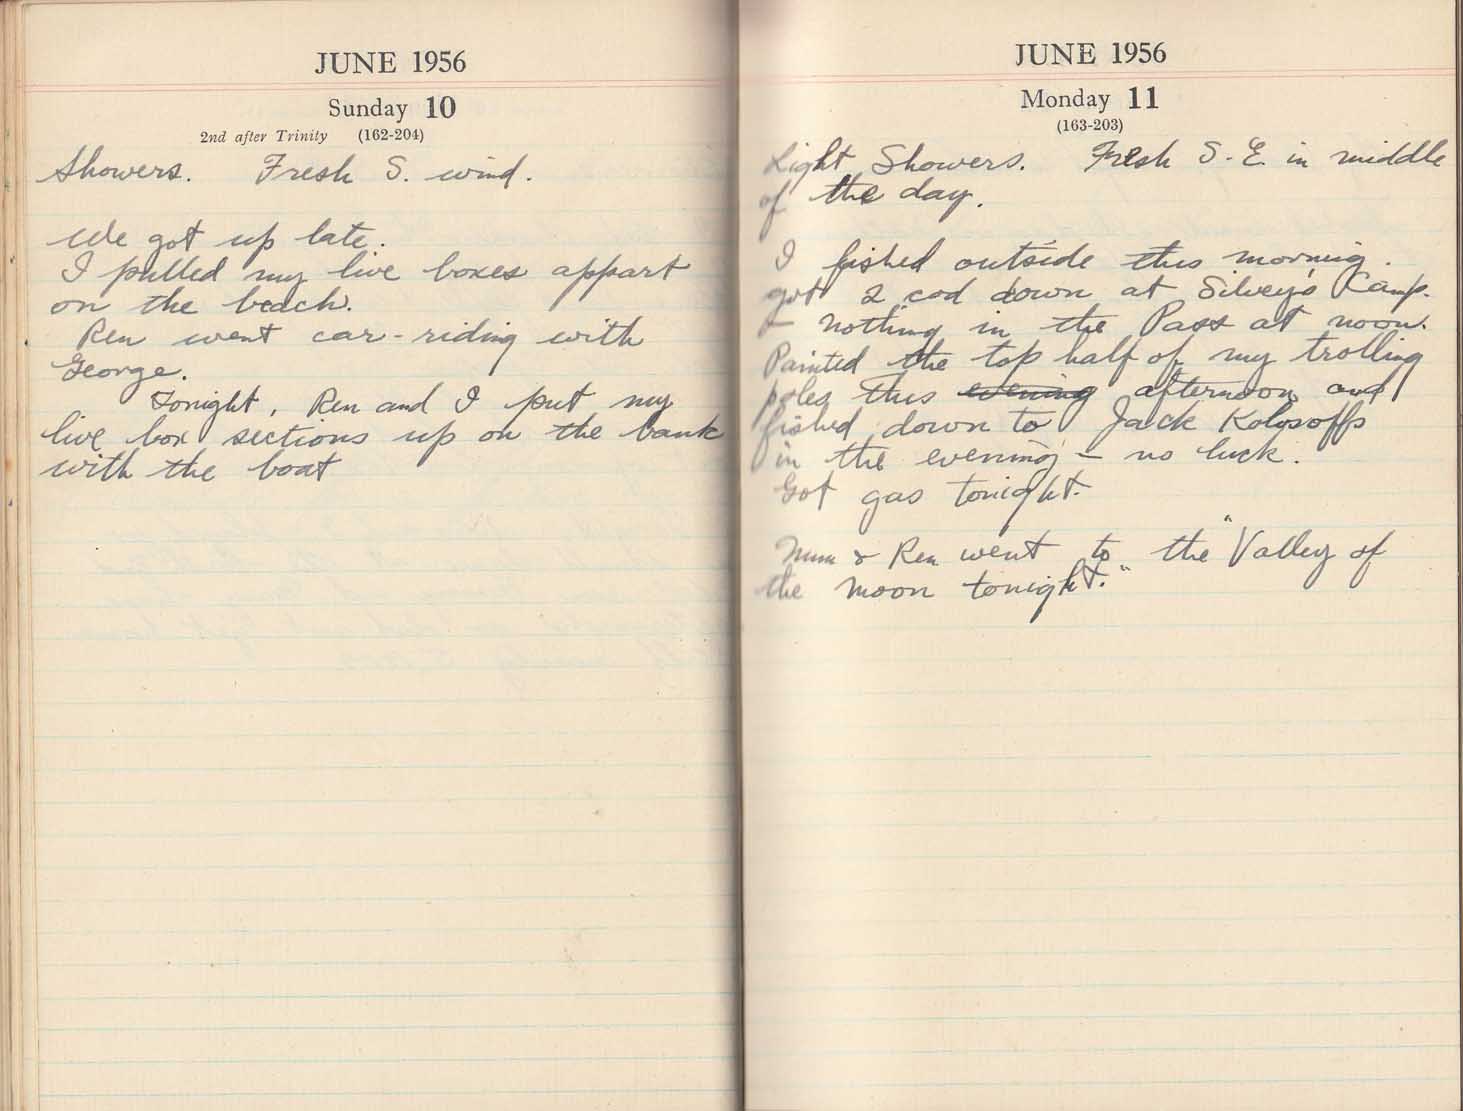 JUNE 1956
Sunday 10
2nd after Trinity (162-204)
Showers. Fresh S. wind.
We got up late.
I pulled my live boxes appart
on the beach.
Ren went car-riding with
George.
Tonight, Ren and I put my
live box sections up on the bank
with the boat
JUNE 1956
Monday 11
(163-203)
Light Showers. Fresh S.E. in middle
of the day.
I fished outside this morning.
got 2 cod down at Silvey's Camp.
& nothing in the Pass at noon.
Painted the top half of my trolling
poles this evening afternoon and
fished down to Jack Kolosoffs
in the evening – no luck.
Got gas tonight.
Mum & Ren went to the "Valley of
the moon tonight."